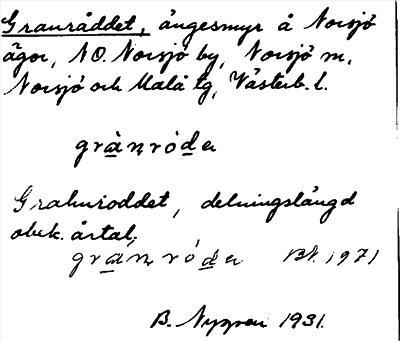 Granråddet, ängesmyr å Norsjö
ägor, NO. Norsjö by, Norsjö sn,
Norsjö och Malå tg, Västerb. l.
grànróder
Grahnroddet, delningslängd
obek. årtal.
grànróde Bl. 1971
B. Nygren 1931.